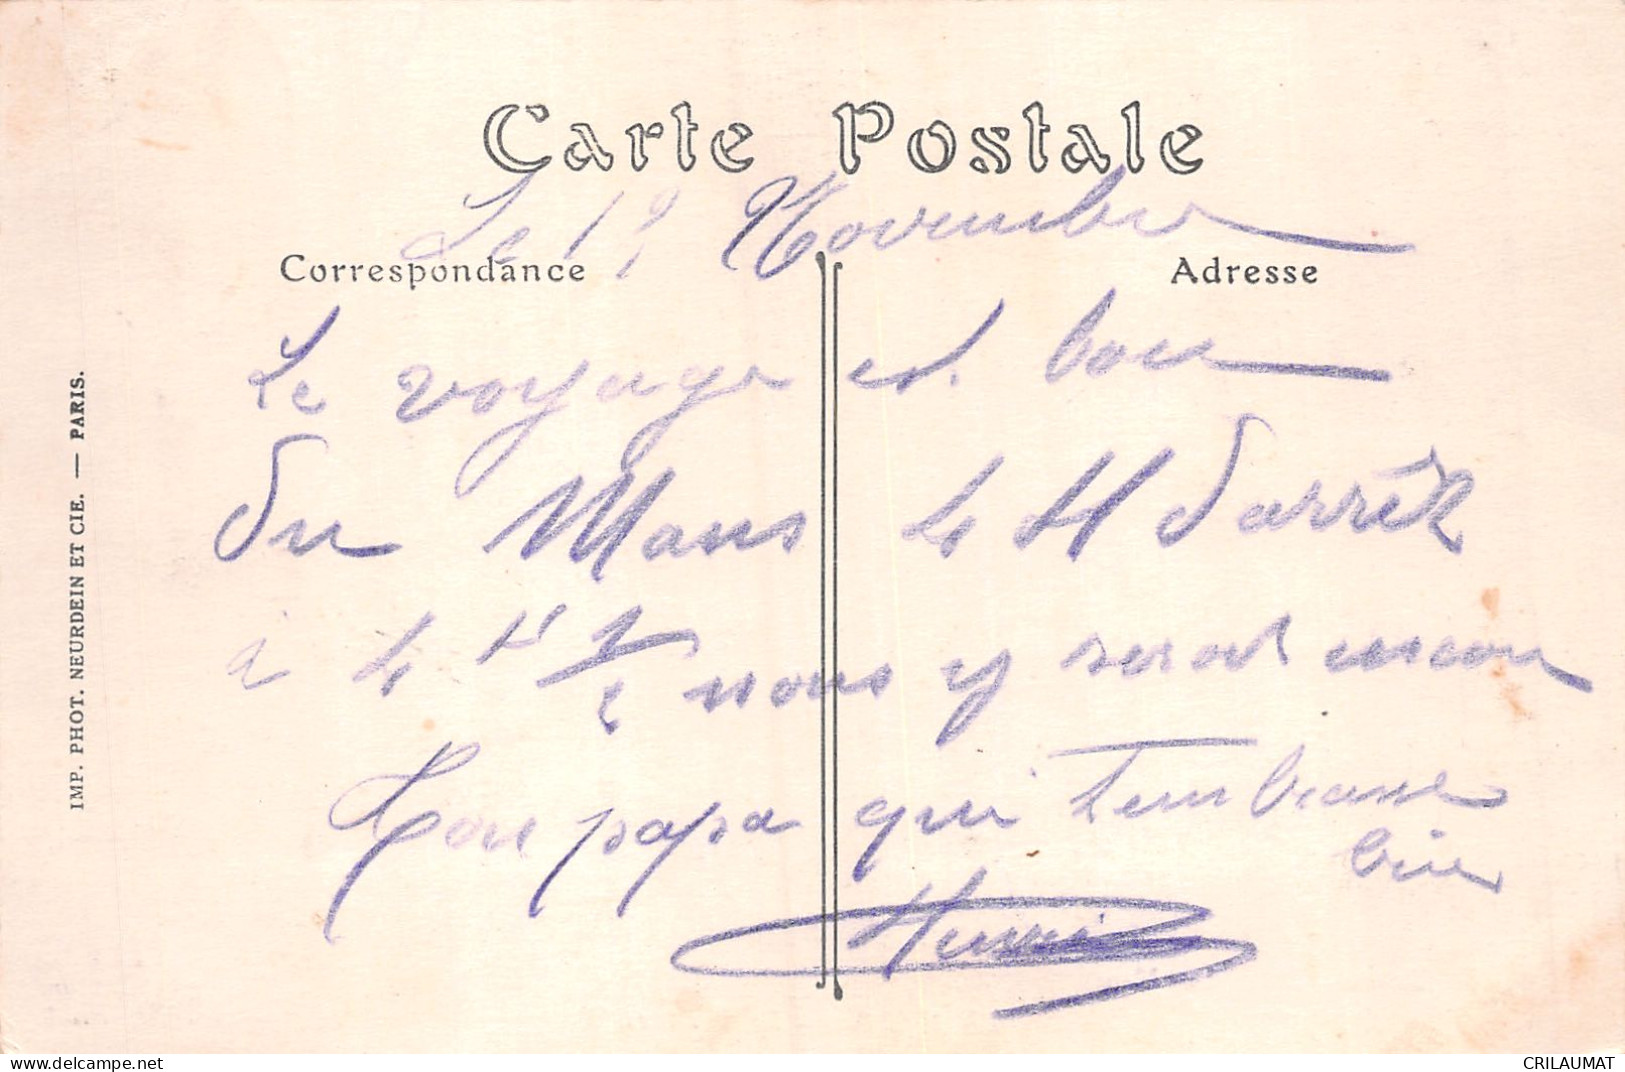 Carte Postale
Le 19 Novembre
Correspondance
Adresse
Le voyage est bon
Du Mans 4 H d'arrêt
à 4 H 1/2 nous y seront encore
Ton papa qui t'embrasse
bien
Henri
IMP. PHOT. NEURDEIN ET CIE. — PARIS.
delcampe.net
CRILAUMAT